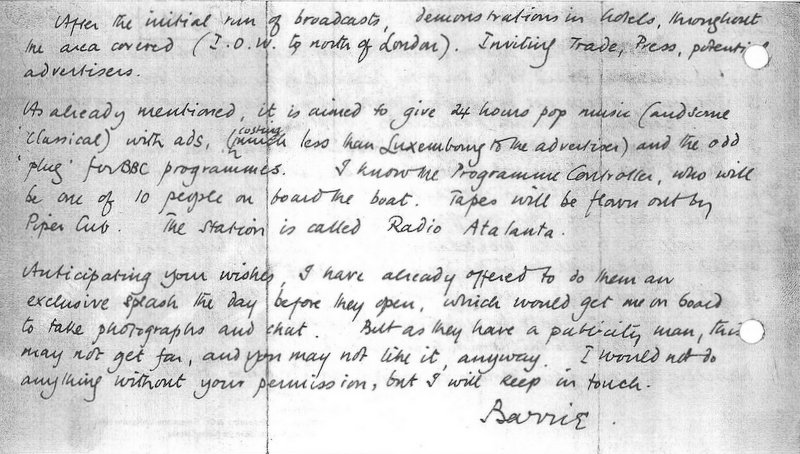 After the initial run of broadcasts, demonstrations in hotels, throughout
the area covered (I.O.W. to north of London). Inviting Trade, Press, potential
advertisers.
As already mentioned, it is aimed to give 24 hours pop music (and some
'classical') with ads, (costing much less than Luxembourg to the advertiser) and the odd
'plug' for BBC programmes. I know the Programme Controller, who will
be one of 10 people on board the boat. Tapes will be flown out by
Piper Cub. The Station is called Radio Atalanta.
Anticipating your wishes, I have already offered to do them an
exclusive splash the day before they open, which would get me on board
to take photographs and chat. But as they have a publicity man, this
may not get far, and you may not like it, anyway. I would not do
anything without your permission, but I will keep in touch.
Barrie.